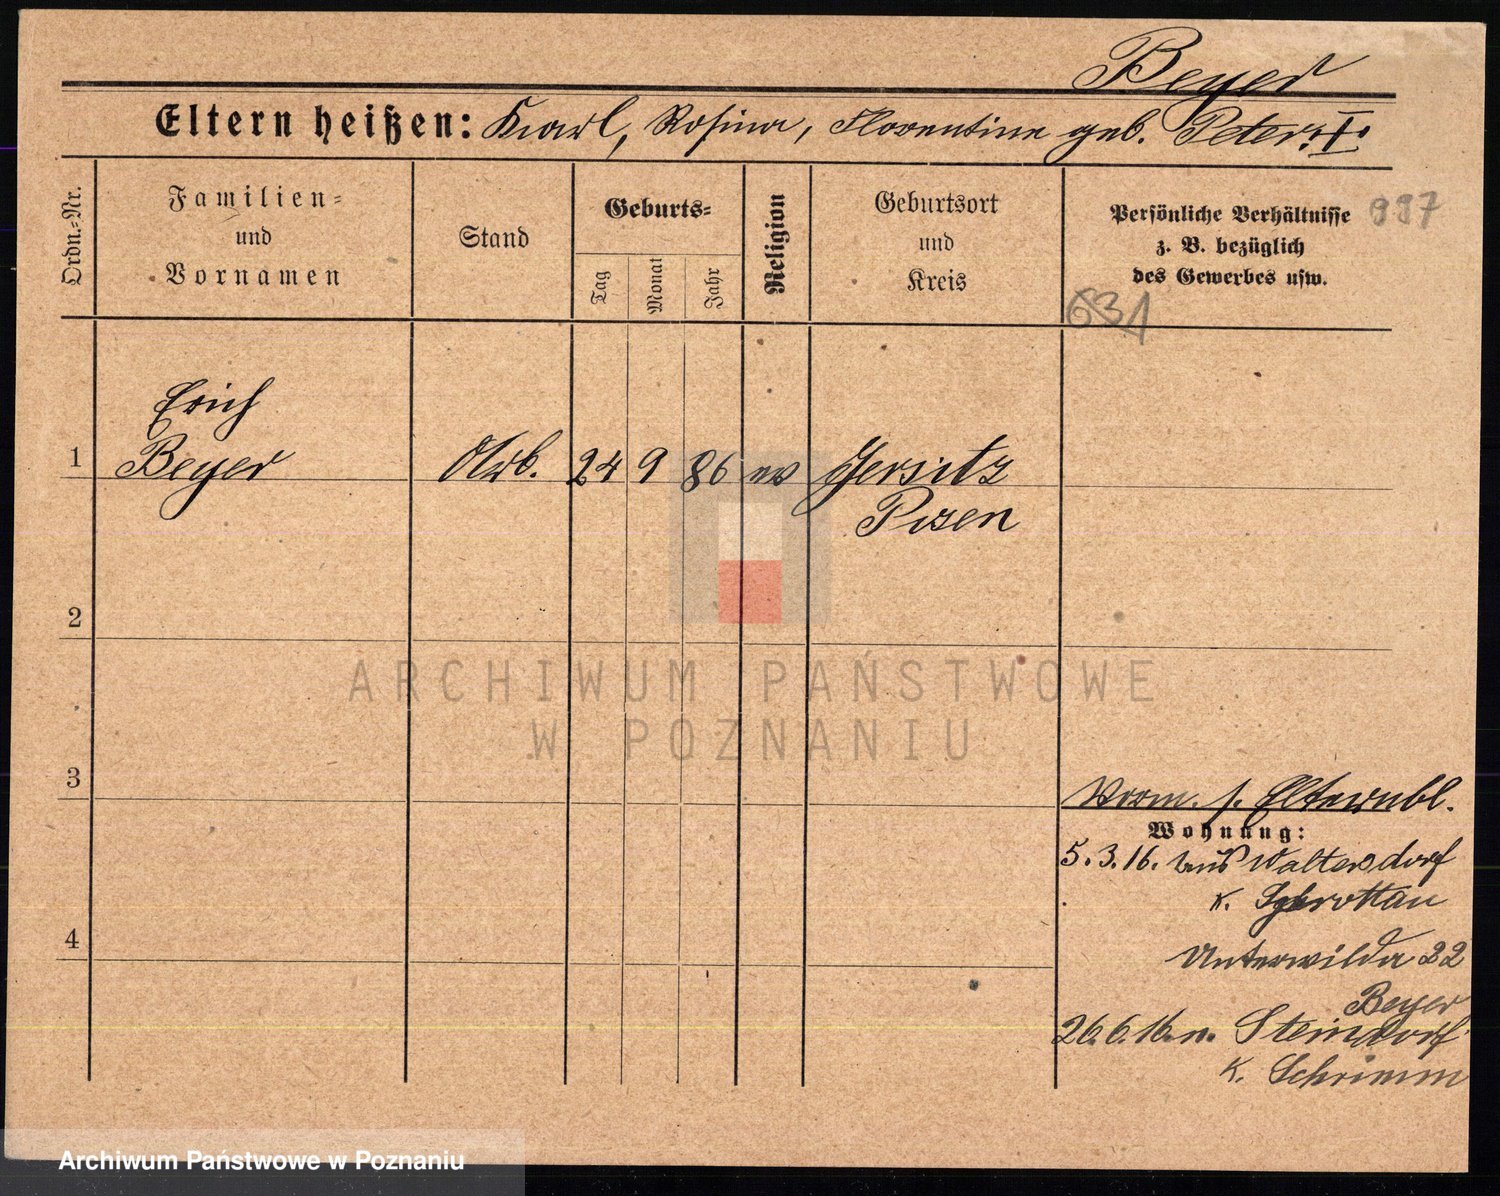 Beyer
Eltern heißen: Karl, Rosina, Florentine geb. Peter I.
Ordn.-Nr.
Familien-
und
Vornamen
Stand
Geburts-
Tag
Monat
Jahr
Religion
Geburtsort
und
Kreis
Persönliche Verhältnisse
z. B. bezüglich
des Gewerbes usw.
937
631
Erich
1 Beyer Arb. 24 9 86 ev Jersitz
Posen
2
3
4
Vorm. s. Elternbl.
Wohnung:
5.3.16. aus Waltersdorf
K. Sprottau
Unterwilda 22
Beyer
26.6.16. n. Steindorf
K. Schrimm
ARCHIWUM PAŃSTWOWE
W POZNANIU
Archiwum Państwowe w Poznaniu